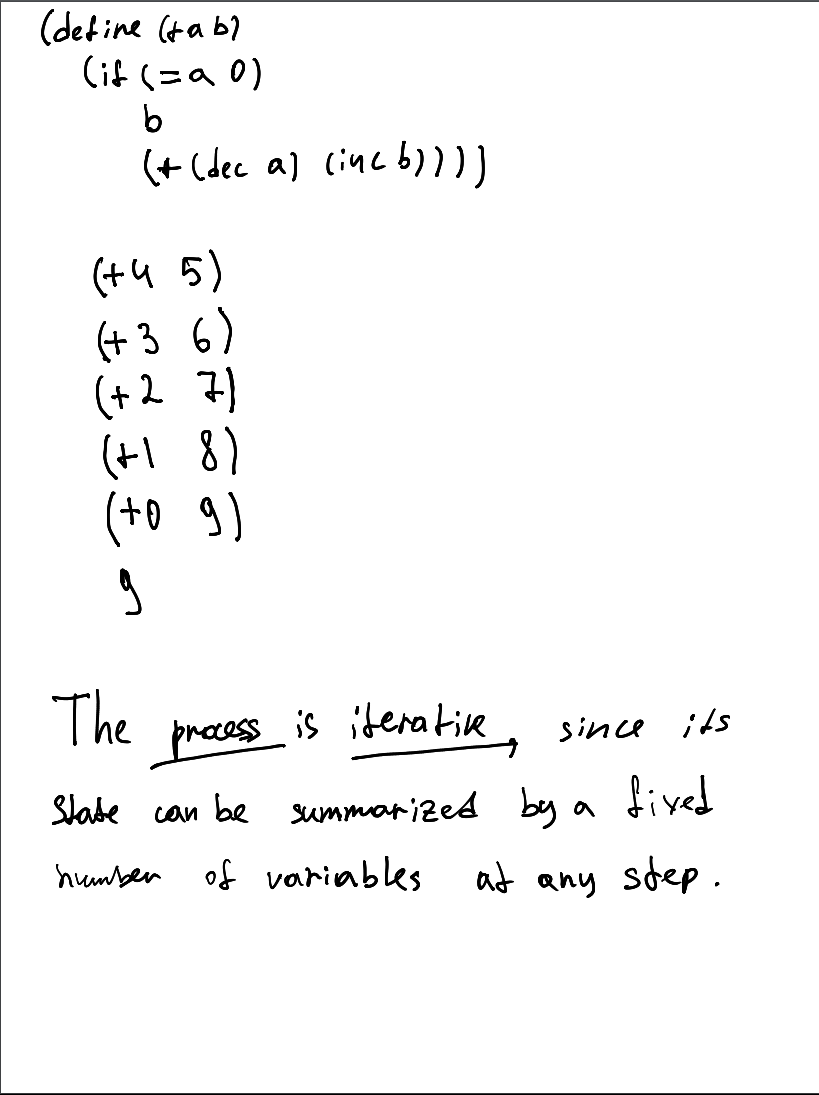 (define (+ a b)
(if (= a 0)
b
(+ (dec a) (inc b))))
(+ 4 5)
(+ 3 6)
(+ 2 7)
(+ 1 8)
(+ 0 9)
9
The process is iterative, since its
state can be summarized by a fixed
number of variables at any step.